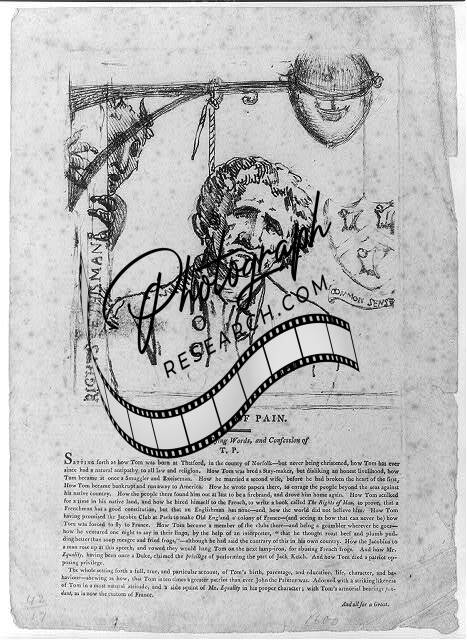 RIGHTS
COMMON SENSE
Photograph
RESEARCH.COM
OF PAIN.
Words, and Confession of
T. P.
SETTING forth as how Tom was born at Thetford, in the county of Norfolk—but never being christened, how Tom has ever
since had a natural antipathy to all law and religion. How Tom was bred a Stay-maker, but disliking an honest livelihood, how
Tom became at once a Smuggler and Exciseman. How he married a second wife, before he had broken the heart of the first.
How Tom became bankrupt and runaway to America. How he wrote papers there, to enrage the people beyond the seas against
his native country. How the people there found him out at last to be a firebrand, and drove him home again. How Tom sculked
for a time in his native land, and how he hired himself to the French, to write a book called The Rights of Man, to prove, that a
Frenchman has a good constitution, but that an Englishman has none—and, how the world did not believe him. How Tom
having promised the Jacobin Club at Paris to make Old England a colony of France—(and owing as how that can never be) how
Tom was forced to fly to France. How Tom became a member of the clubs there—and being a grumbler wherever he goes—
how he ventured one night to say in their lingo, by the help of an interpreter, "that he thought roast beef and plumb pud-
ding better than soup meagre and fried frogs,"—although he had said the contrary of this in his own country. How the Jacobins to
a man rose up at this speech, and vowed they would hang Tom on the next lamp-iron, for abusing French frogs. And how Mr.
Equality, having been once a Duke, claimed the privilege of performing the part of Jack Ketch. And how Tom died a patriot op-
posing privilege.
The whole setting forth a full, true, and particular account, of Tom's birth, parentage, and education, life, character, and be-
haviour—shewing as how, that Tom is ten times a greater patriot than ever John the Painter was. Adorned with a striking likeness
of Tom in a most natural attitude, and a side squint of Mr. Equality in his proper character; with Tom's armorial bearings
as is now the custom of France.
And all for a Groat.